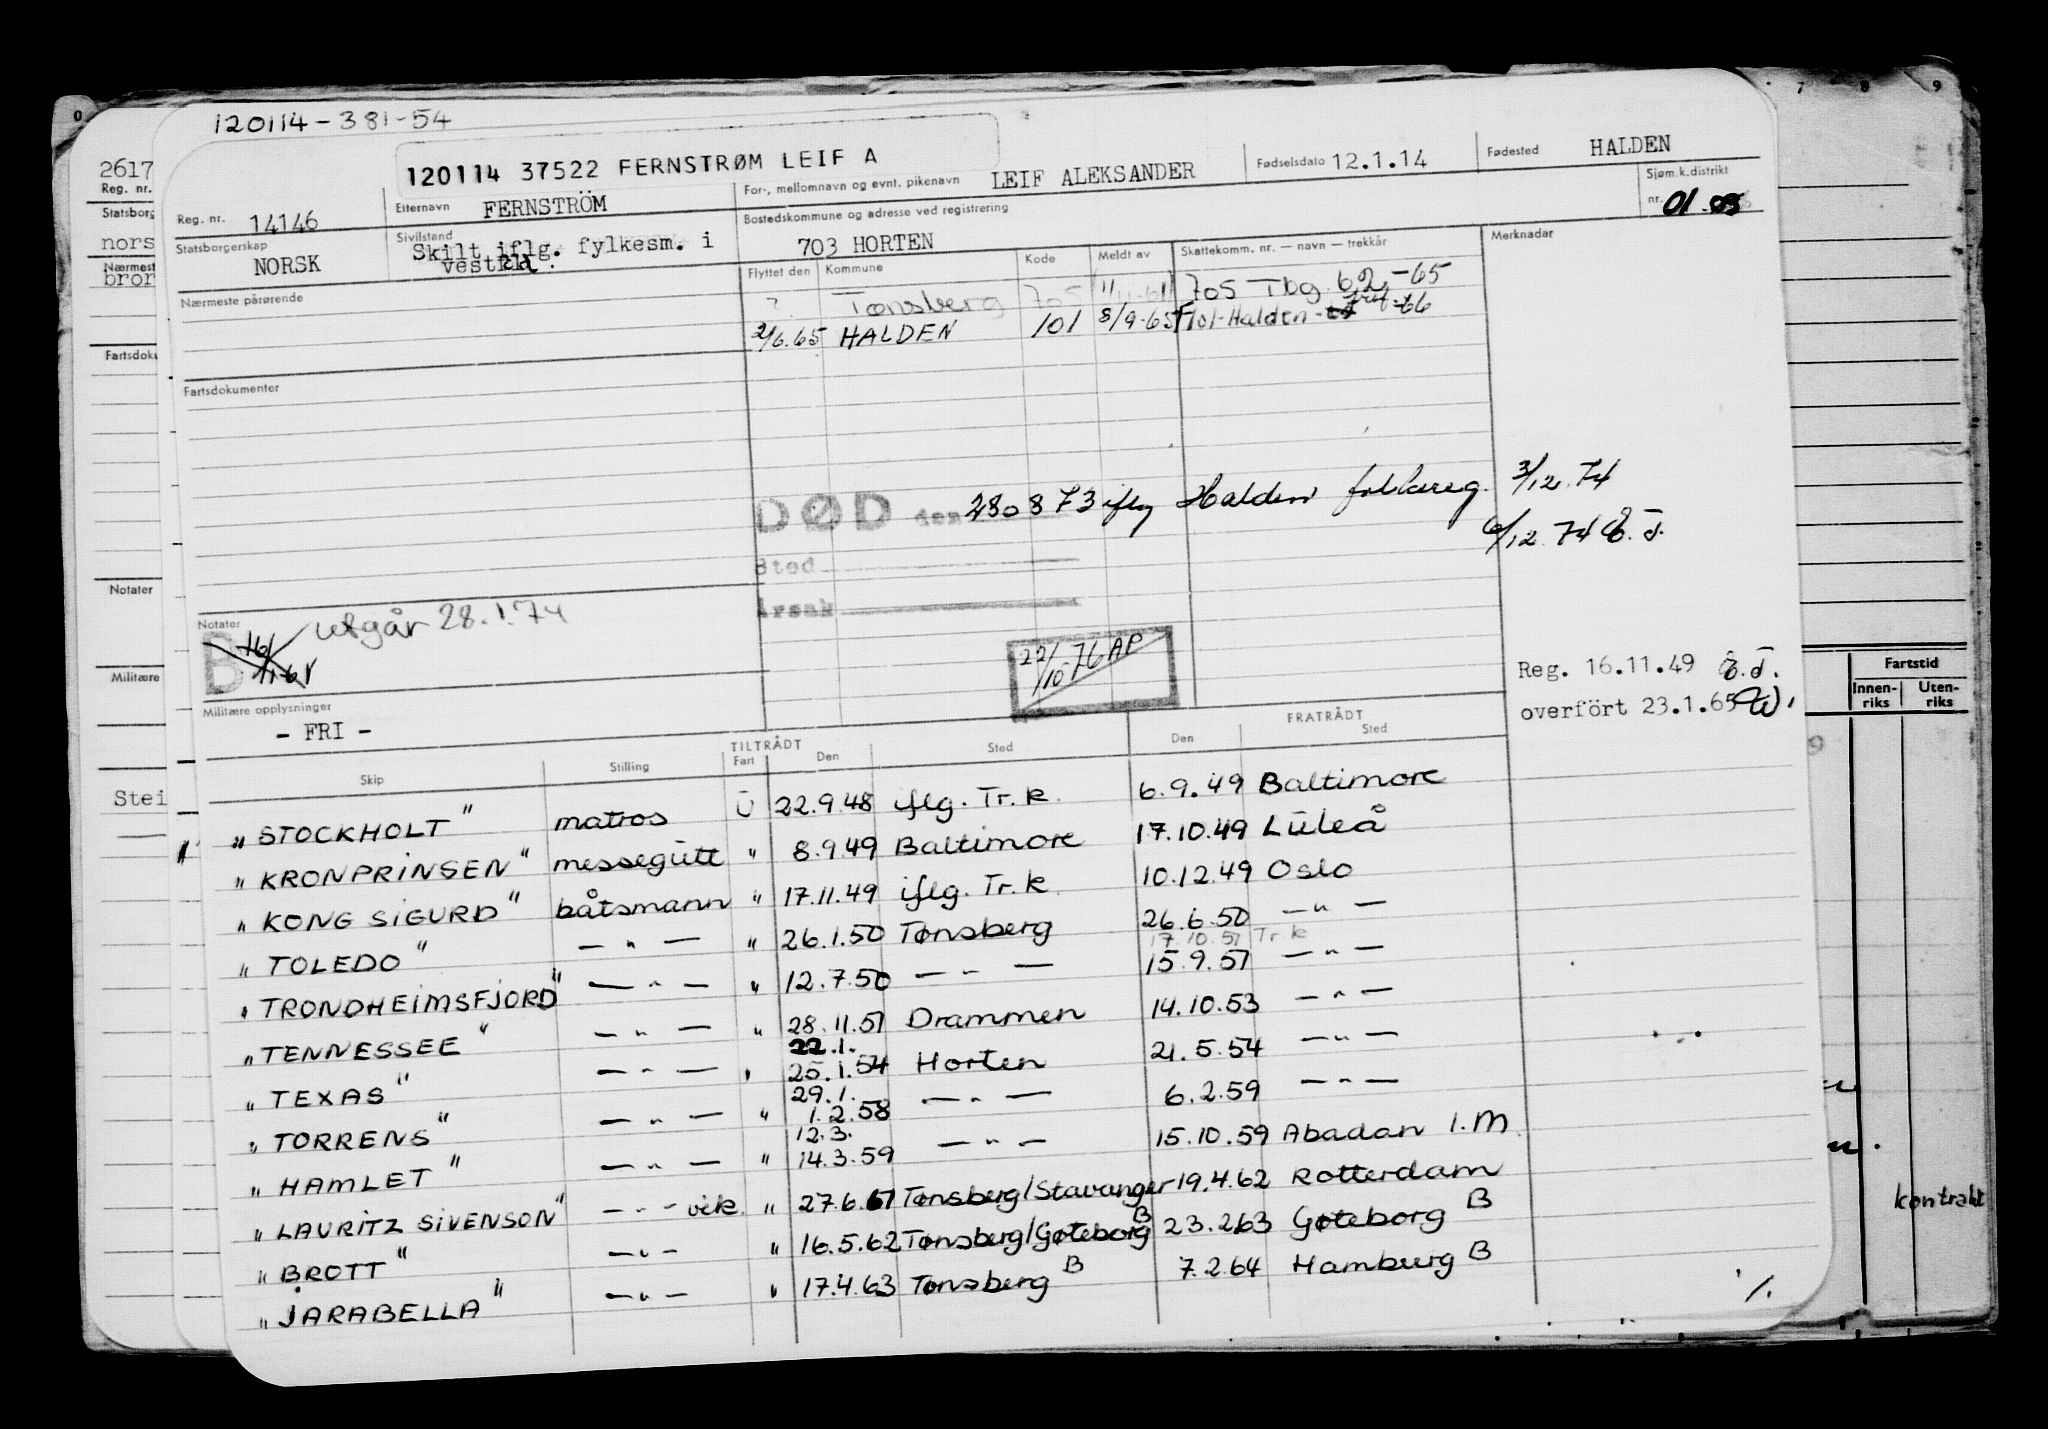 120114-381-54
120114 37522 FERNSTRØM LEIF A
Reg. nr. 14146
Etternavn FERNSTRÖM
For-, mellomnavn og evnt. pikenavn LEIF ALEKSANDER
Fødselsdato 12.1.14
Fødested HALDEN
Statsborgerskap NORSK
Sivilstand Skilt iflg. fylkesm. i
Bostedskommune og adresse ved registrering
703 HORTEN
Sjøm.k.distrikt
nr. 01
Nærmeste pårørende
Flyttet den Kommune Kode Meldt av Skattekomm. nr. — navn — trekkår Merknader
? Tønsberg 705 705 Tbg 62-65
2/6.65 HALDEN 101 8/9-65 101-Halden -66
Fartsdokumenter
DØD den 280873 iflg Halden folkereg. 3/12.74
6/12.74
Sted
Årsak
Notater
B utgår 28.1.74
22/10 76 AP
Militære opplysninger
- FRI -
Reg. 16.11.49
overfört 23.1.65
TILTRÅDT FRATRÅDT
Skip Stilling Fart Den Sted Den Sted
" STOCKHOLT " matros U 22.9.48 iflg. Tr.k. 6.9.49 Baltimore
" KRONPRINSEN " messegutt " 8.9.49 Baltimore 17.10.49 Luleå
" KONG SIGURD " båtsmann " 17.11.49 iflg. Tr.k. 10.12.49 Oslo
" TOLEDO " — " — " 26.1.50 Tønsberg 26.6.50 — " —
17.10.51 Tr.k
" TRONDHEIMSFJORD " — " — " 12.7.50 — " — 15.9.51 — " —
" TENNESSEE " — " — " 28.11.51 Drammen 14.10.53 — " —
22.1.
" TEXAS " — " — " 25.1.54 Horten 21.5.54 — " —
29.1.
" TORRENS " — " — " 1.2.58 — " — 6.2.59 — " —
12.3.
" HAMLET " — " — " 14.3.59 — " — 15.10.59 Abadan I.M.
" LAURITZ SIVENSON " — " — vik. " 27.6.61 Tønsberg/Stavanger 19.4.62 Rotterdam
" BROTT " — " — " 16.5.62 Tønsberg/Gøteborg B 23.2.63 Gøteborg B
" JARABELLA " — " — " 17.4.63 Tønsberg B 7.2.64 Hamburg B
./.
2617
Reg. nr.
Statsborg
nors
Nærmest
bror
Fartsdoku
Notater
Militære
Stei
Fartstid
Innen-riks Uten-riks
kontrakt
7 8 9